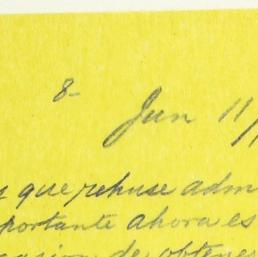 8-
Jun 11/
y que rehuse adm
portante ahora es
casion de obtene